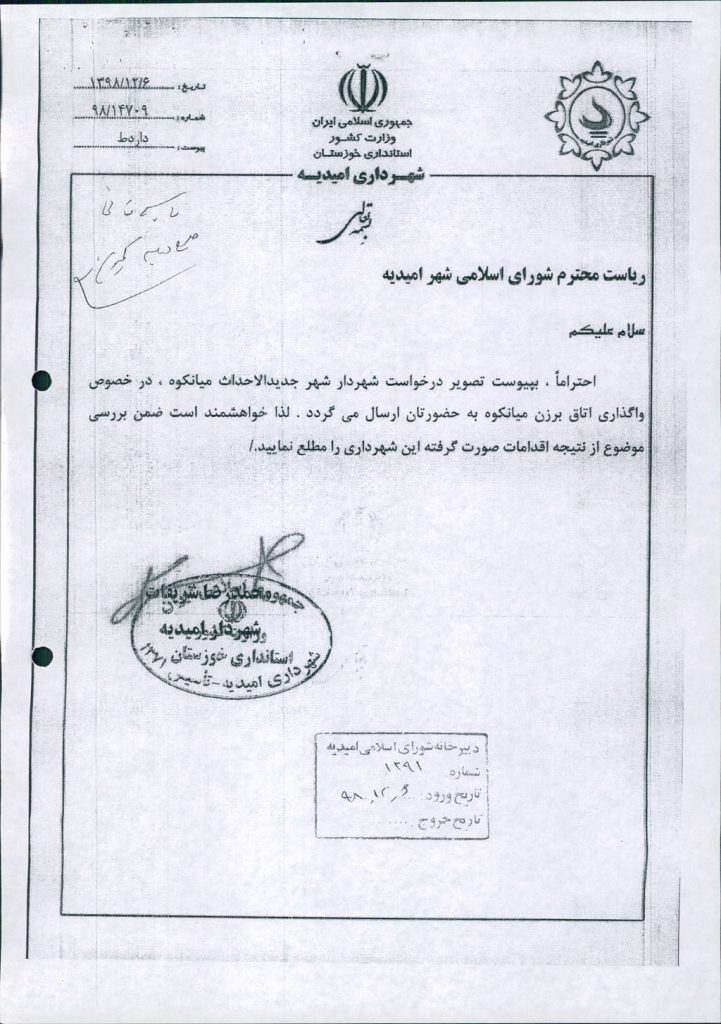 تاریخ: ۱۳۹۸/۱۲/۶
شماره: ۹۸/۱۴۷۰۹
پیوست: دارد ط
جمهوری اسلامی ایران
وزارت کشور
استانداری خوزستان
شهرداری امیدیه
بسمه تعالی
ریاست محترم شورای اسلامی شهر امیدیه
سلام علیکم
احتراماً ، بپیوست تصویر درخواست شهردار شهر جدیدالاحداث میانکوه ، در خصوص
واگذاری اتاق برزن میانکوه به حضورتان ارسال می گردد . لذا خواهشمند است ضمن بررسی
موضوع از نتیجه اقدامات صورت گرفته این شهرداری را مطلع نمایید./
محمدرضا شریفات
شهردار امیدیه
استانداری خوزستان
شهرداری امیدیه - تأسیس ۱۳۷۱
دبیرخانه شورای اسلامی امیدیه
شماره ۱۲۹۱
تاریخ ورود ۹۸.۱۲.۶
تاریخ خروج